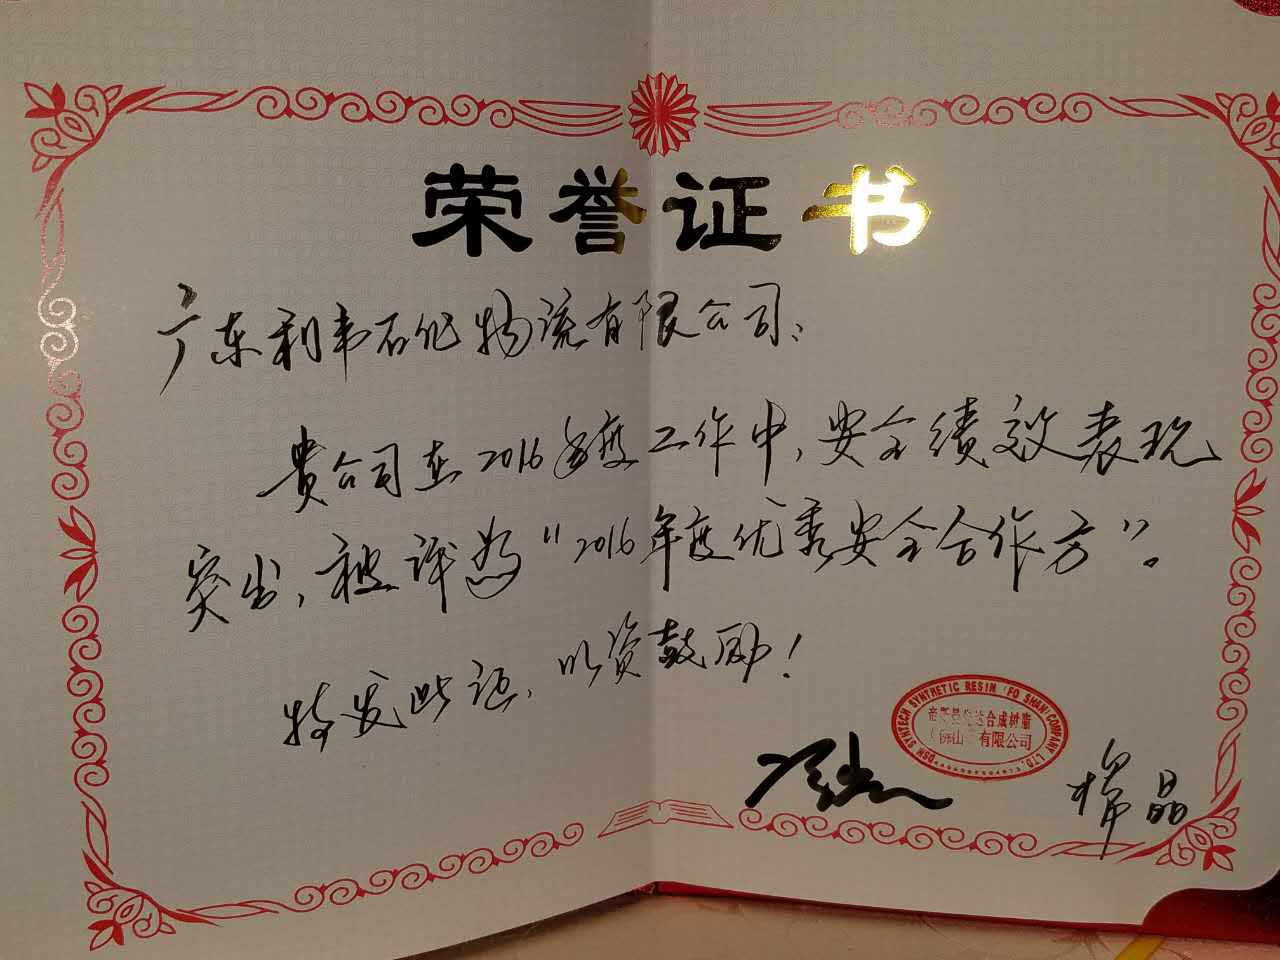 荣誉证书
广东利韦石化物流有限公司：
贵公司在2016年度工作中，安全绩效表现
突出，被评为“2016年度优秀安全合作方”。
特发此证，以资鼓励！
DSM SYNTECH SYNTHETIC RESIN (FO SHAN) COMPANY LTD.
合成树脂
（佛山）有限公司